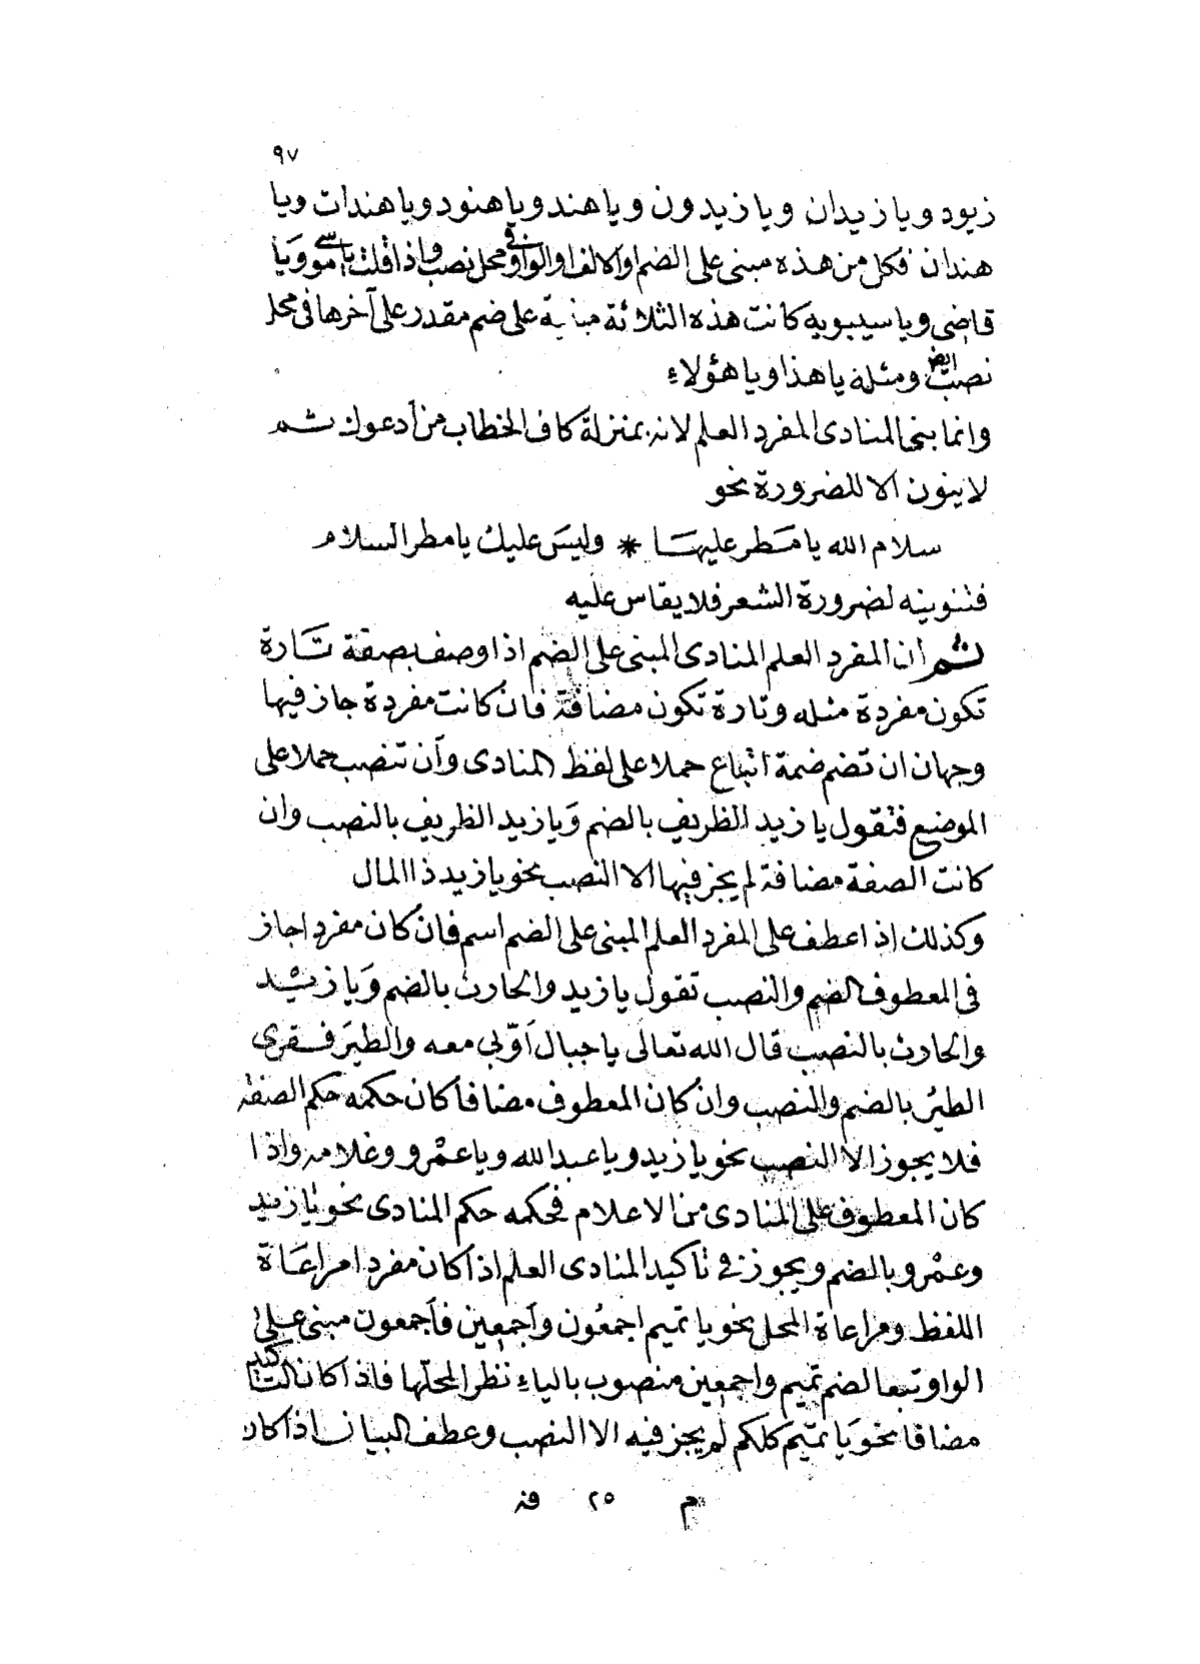 ٩٧
زيود ويا زيدان ويا زيدون ويا هند ويا هنود ويا هندات ويا
هندان فكل من هذه مبنى على الضم او الالف او الواو في محل نصب واذا قلت يا موسى ويا
قاضى ويا سيبويه كانت هذه الثلاثة مبنية على ضم مقدر على آخرها فى محل
نصب ايضا ومثله يا هذا ويا هؤلاء
وانما بنى المنادى المفرد العلم لانه بمنزلة كاف الخطاب من أدعوك ثم
لا ينون الا للضرورة نحو
سلام الله يا مطر عليها * وليس عليك يا مطر السلام
فتنوينه لضرورة الشعر فلا يقاس عليه
ثم أن المفرد العلم المنادى المبنى على الضم اذا وصف بصفة تارة
تكون مفردة مثله وتارة تكون مضافة فان كانت مفردة جاز فيها
وجهان ان تضم ضمة اتباع حملا على لفظ المنادى وأن تنصب حملا على
الموضع فتقول يا زيد الظريف بالضم وَيا زيد الظريف بالنصب وان
كانت الصفة مضافة لم يجز فيها الا النصب نحو يا زيد ذا المال
وكذلك اذا عطف على المفرد العلم المبنى على الضم اسم فان كان مفردا جاز
فى المعطوف الضم والنصب تقول يا زيد والحارث بالضم وَيا زيْد
والحارث بالنصب قال الله تعالى يا جبال أوّبى معه والطيرَ فقرى
الطيرُ بالضم والنصب وان كان المعطوف مضافا كان حكمه حكم الصفة
فلا يجوز الا النصب نحو يا زيد ويا عبد الله ويا عمْرو وغلامه واذا
كان المعطوف على المنادى من الاعلام فحكمه حكم المنادى نحو يا زيد
وعمْرو بالضم ويجوز في تاكيد المنادى العلم اذا كان مفردا مراعَاة
اللفظ ومراعاة المحل نحو يا تميم اجمعُون وأجمعِين فأجمعون مبنى على
الواو تبعا لضم تميم واجمعين منصوب بالياء نظرا لمحلّها فاذا كان التاكيد
مضافا نحو يَا تميمَ كلكم لم يجز فيه الا النصب وعطف البيان اذا كان
م ٢٥ فن